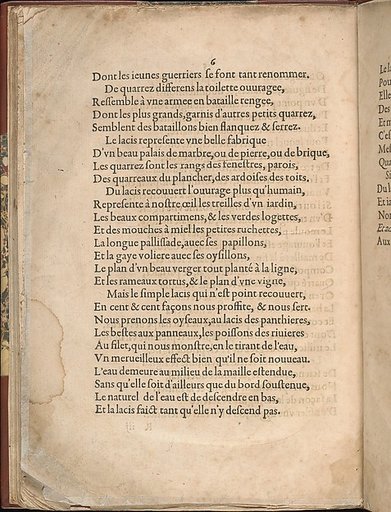 6
Dont les ieunes guerriers se font tant renommer.
De quarrez differens la toilette ouuragee,
Ressemble à vne armee en bataille rengee,
Dont les plus grands, garnis d'autres petits quarrez,
Semblent des bataillons bien flanquez & serrez.
Le lacis represente vne belle fabrique
D'vn beau palais de marbre, ou de pierre, ou de brique,
Les quarrez sont les rangs des fenestres, parois,
Des quarreaux du plancher, des ardoises des toits,
Du lacis recouuert l'ouurage plus qu'humain,
Represente à nostre œil les treilles d'vn iardin,
Les beaux compartimens, & les verdes logettes,
Et des mouches à miel les petites ruchettes,
La longue pallissade, auec ses papillons,
Et la gaye voliere auec ses oysillons,
Le plan d'vn beau verger tout planté à la ligne,
Et les rameaux tortus, & le plan d'vne vigne,
Mais le simple lacis qui n'est point recouuert,
En cent & cent façons nous profite, & nous sert.
Nous prenons les oyseaux, au lacis des panthieres,
Les bestes aux panneaux, les poissons des riuieres
Au filet, qui nous monstre, en le tirant de l'eau,
Vn merueilleux effect bien qu'il ne soit nouueau.
L'eau demeure au milieu de la maille estendue,
Sans qu'elle soit d'ailleurs que du bord soustenue,
Le naturel de l'eau est de descendre en bas,
Et la lacis faict tant qu'elle n'y descend pas.